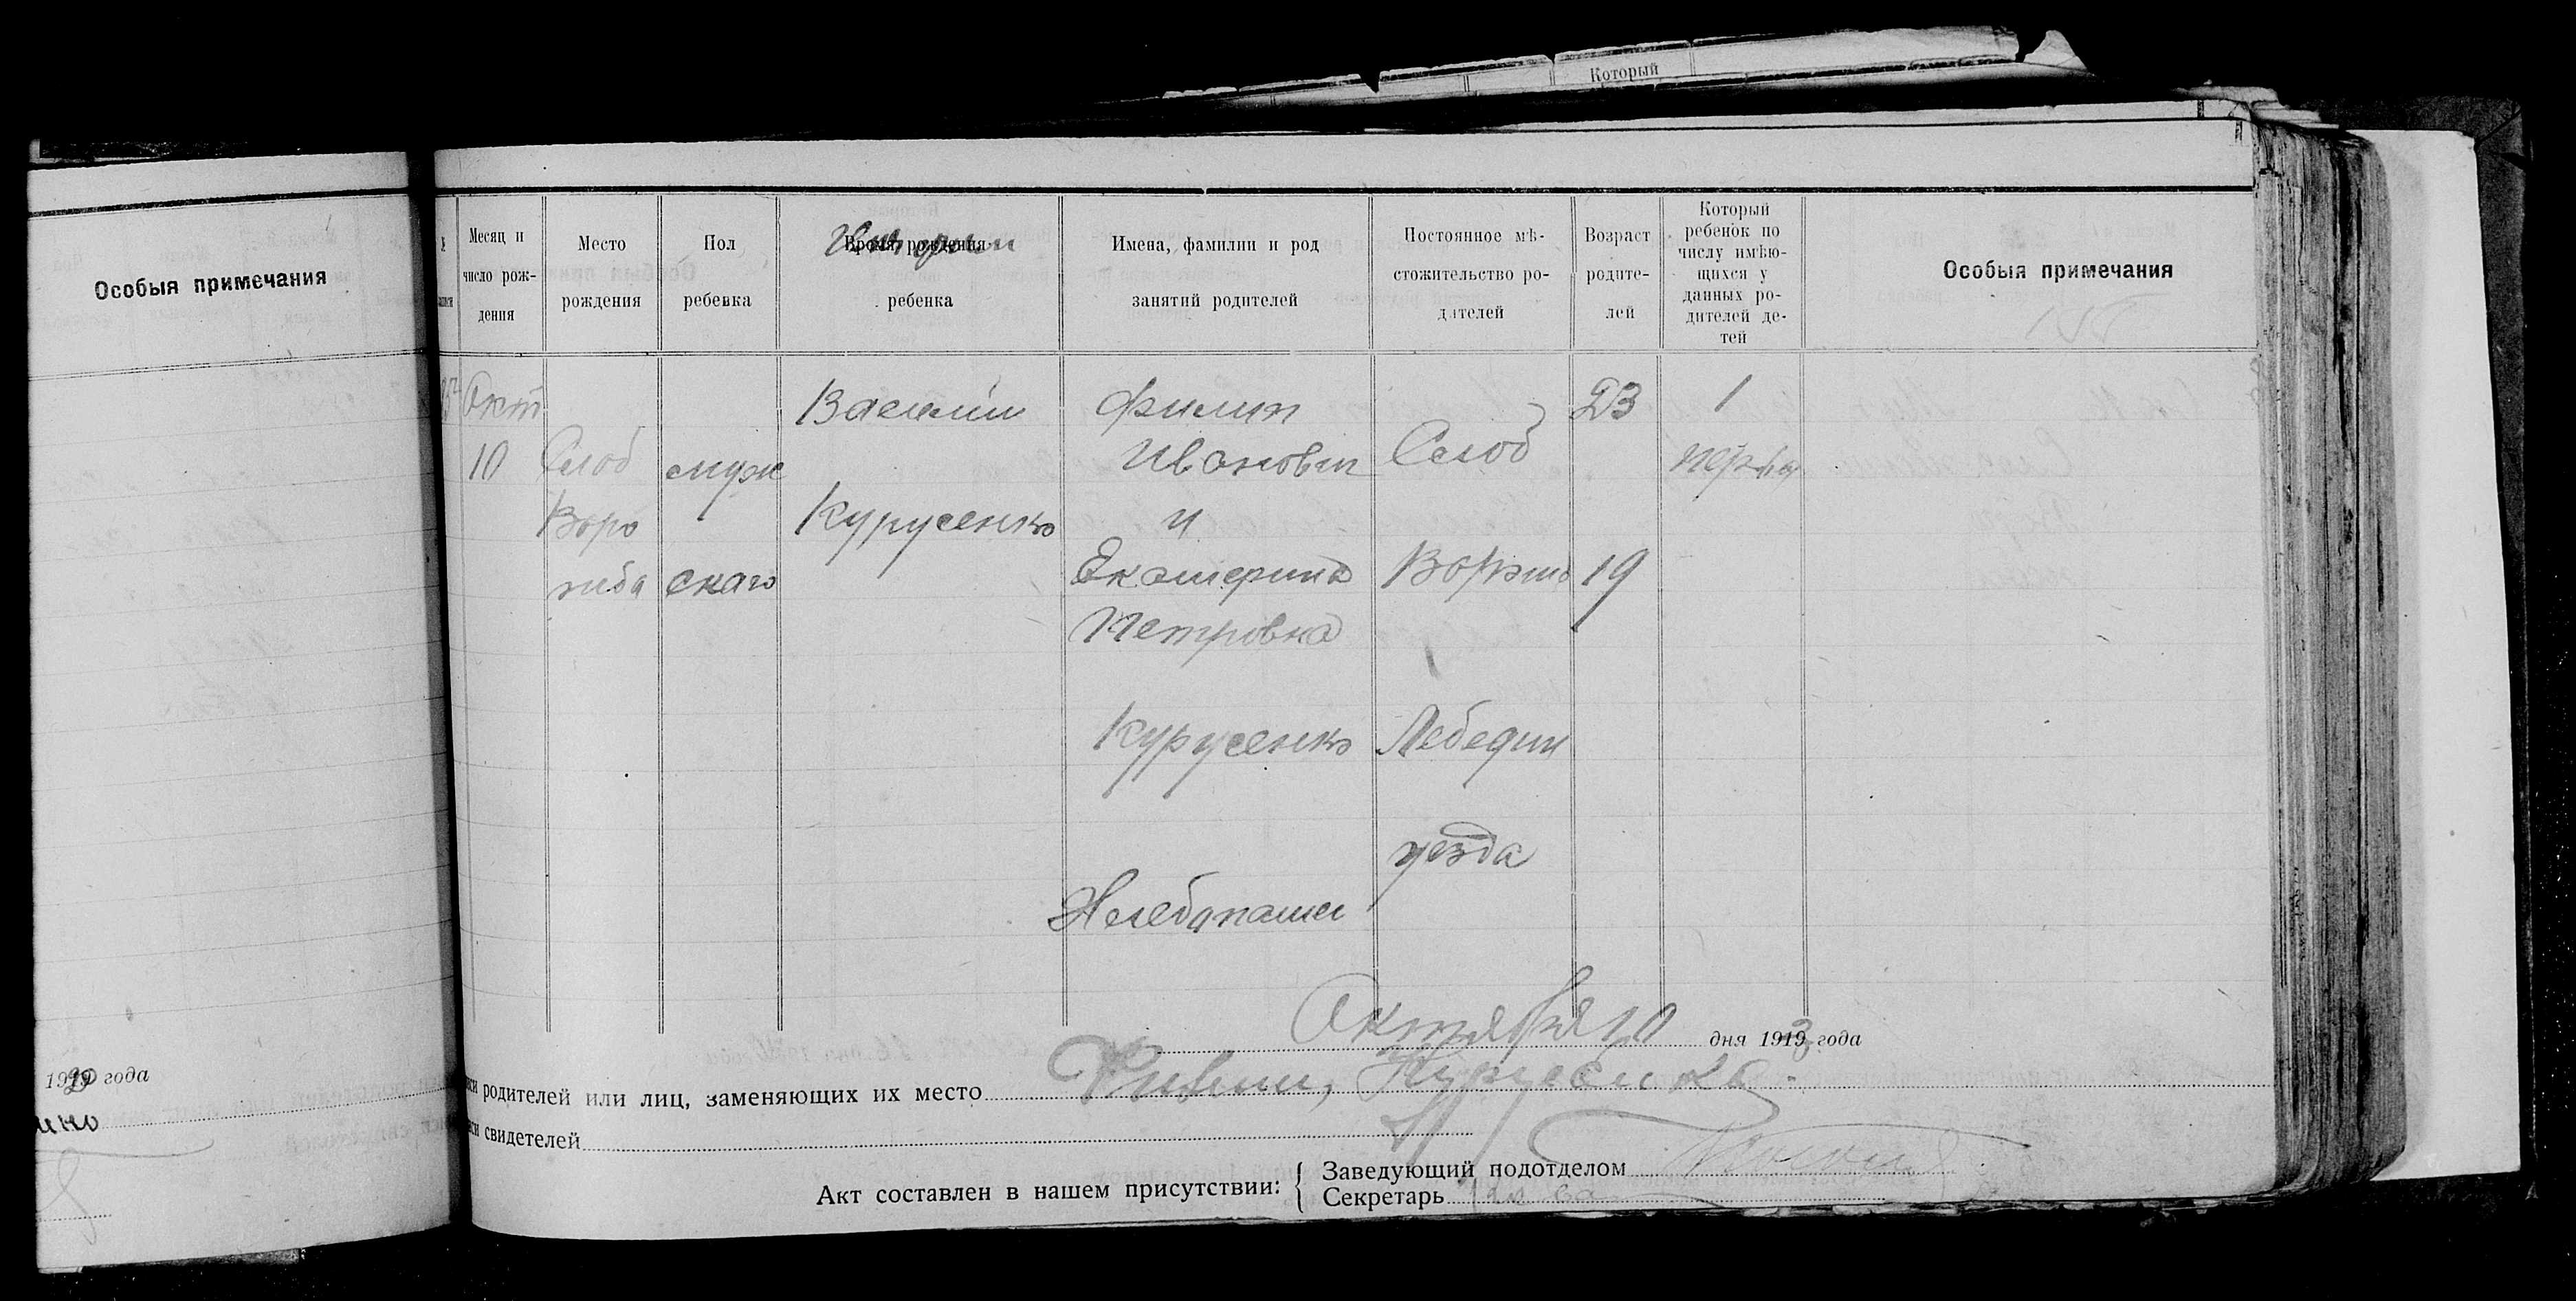 Который
Особыя примечания
года
Месяц и число рождения
Место рождения
Пол ребенка
Время рождения ребенка
Имена, фамилии и род занятий родителей
Постоянное мѣстожительство родителей
Возраст родителей
Который ребенок по числу имѣющихся у данных родителей детей
Особыя примечания
Окт
10
Слоб
Воро
жба
мужскаго
Василий
Курусенко
Филип
Иванович
и
Екатерина
Петровна
Курусенко
Хлебопашец
Слоб
Ворожба
Лебедин
уезда
23
19
1
первы
Октября 10 дня 1919 года
родителей или лиц, заменяющих их место
Курусенко
свидетелей
Акт составлен в нашем присутствии:
Заведующий подотделом
Секретарь